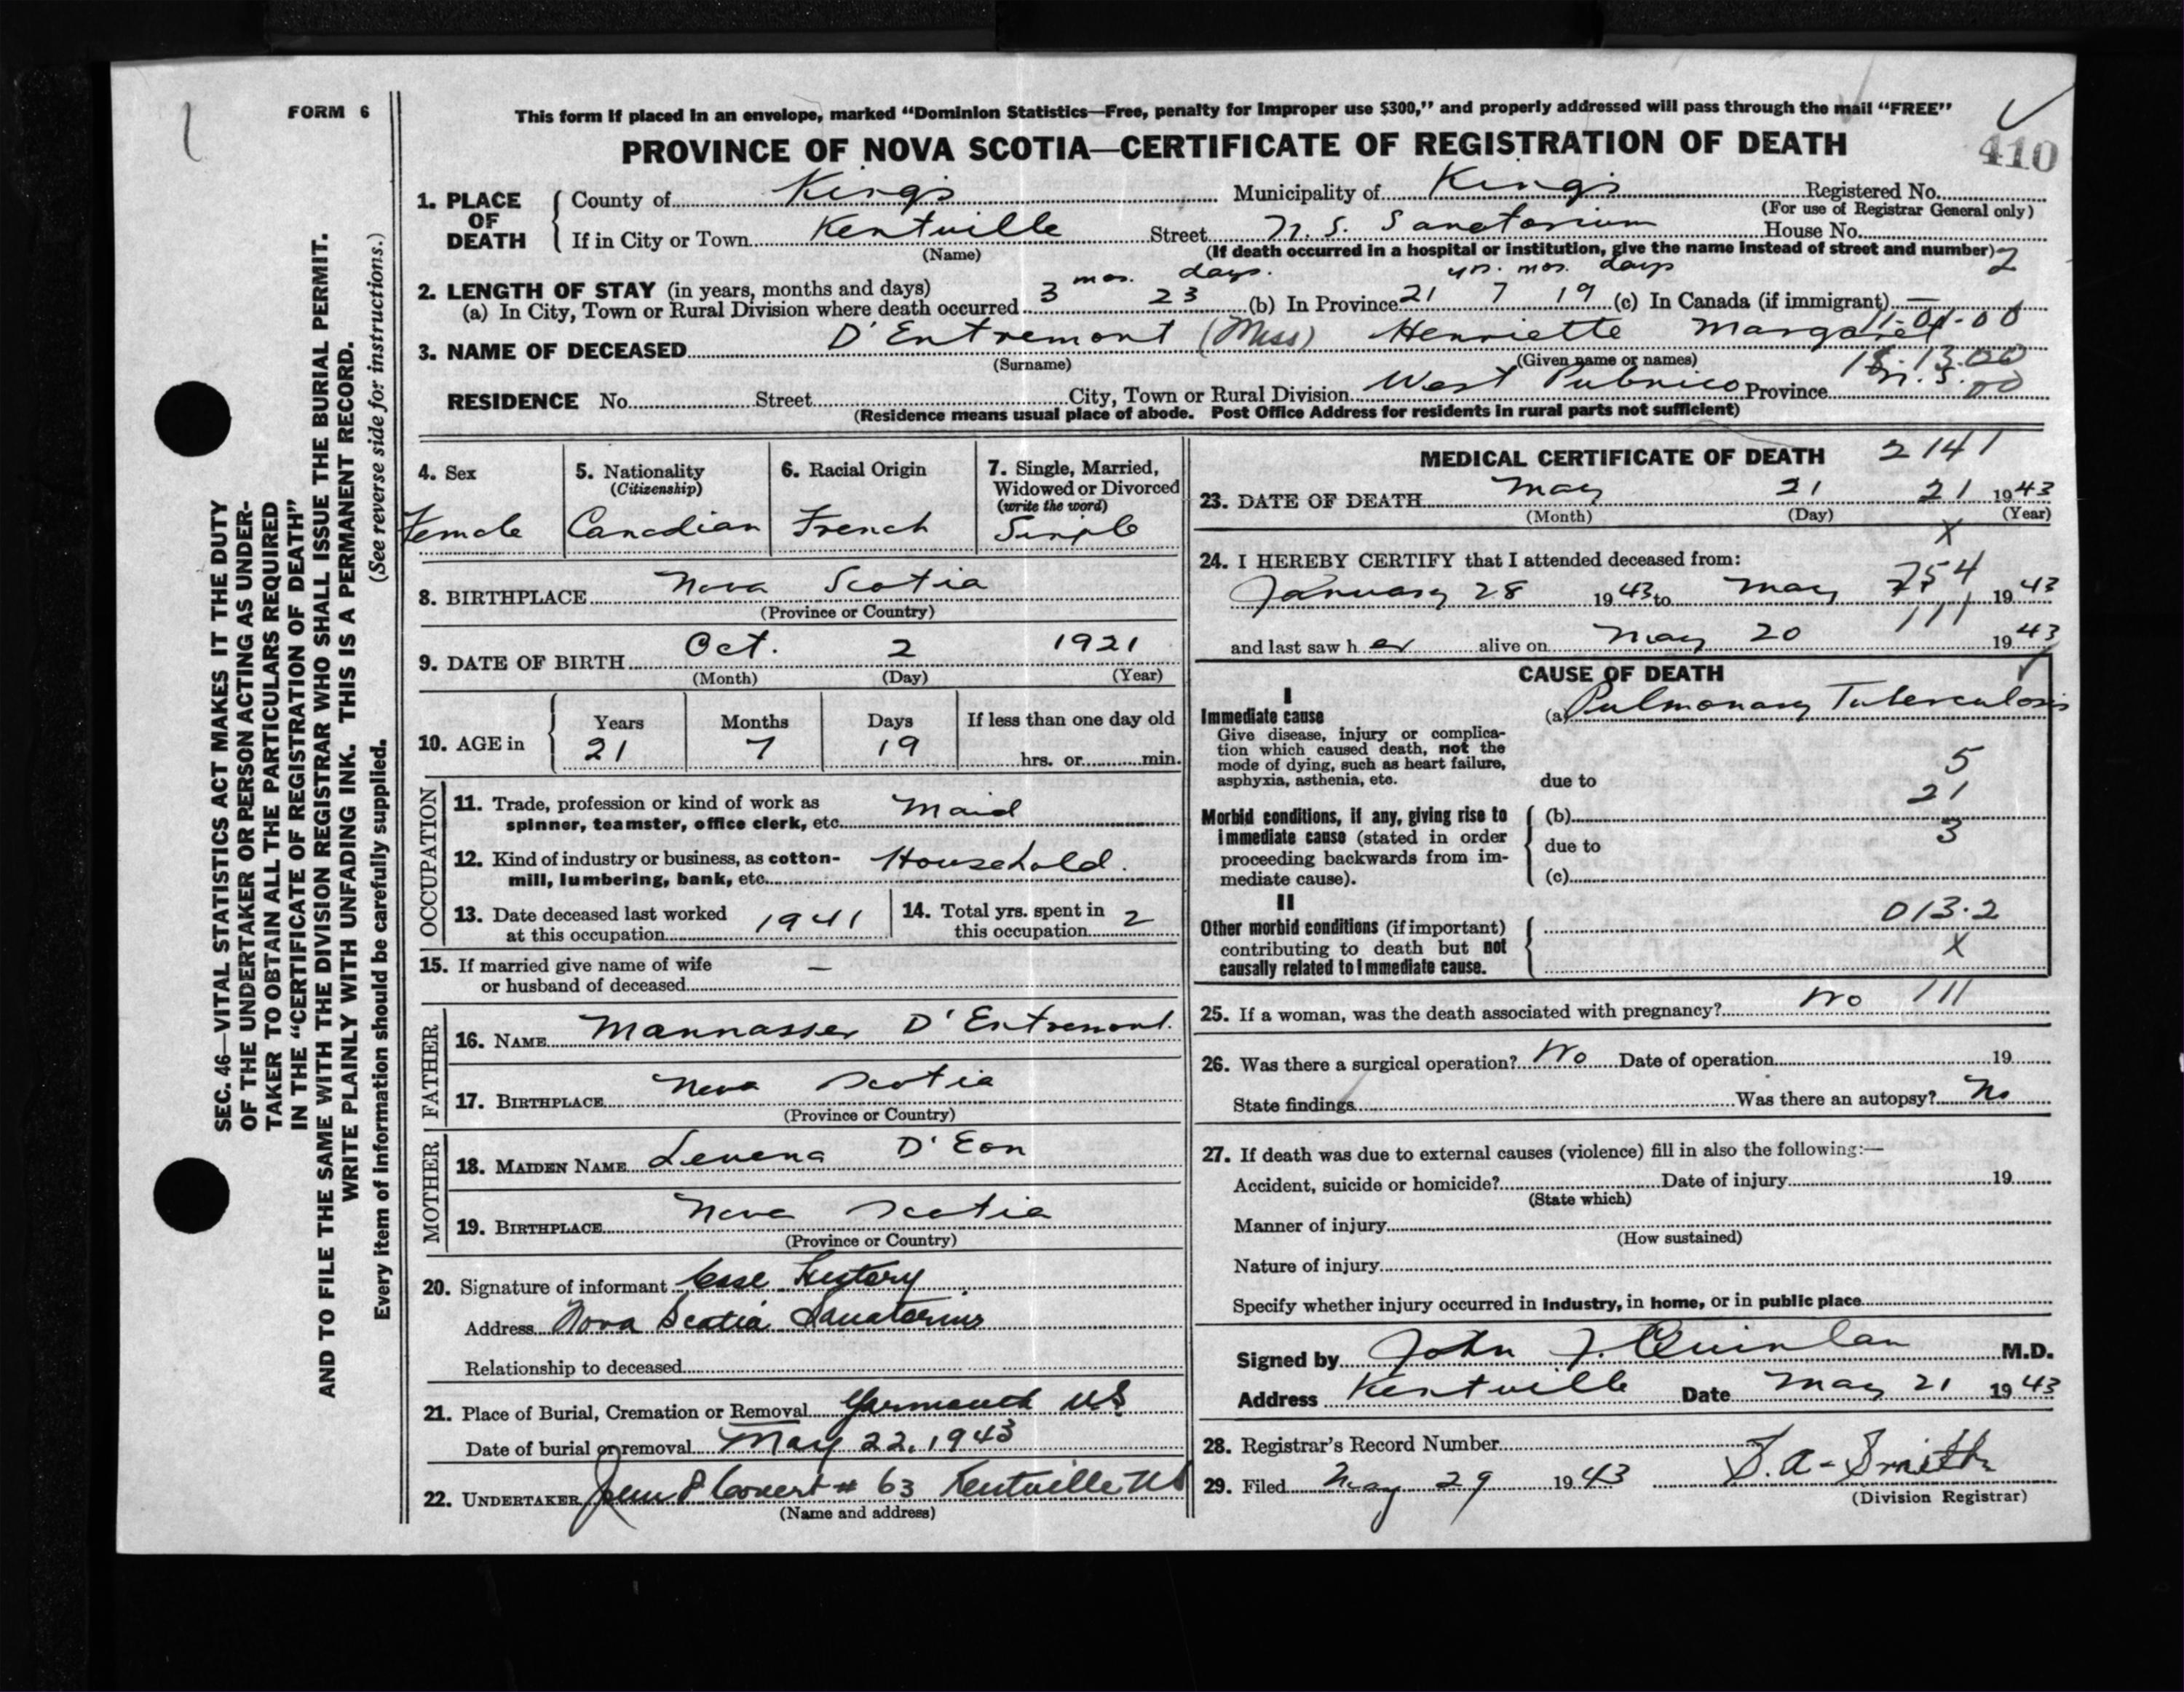 FORM 6
This form if placed in an envelope, marked "Dominion Statistics—Free, penalty for improper use $300," and properly addressed will pass through the mail "FREE"
PROVINCE OF NOVA SCOTIA—CERTIFICATE OF REGISTRATION OF DEATH
410
1. PLACE OF DEATH
County of Kings Municipality of Kings Registered No.
(For use of Registrar General only)
If in City or Town Kentville Street N. S. Sanatorium House No.
(Name) (If death occurred in a hospital or institution, give the name instead of street and number) 2
mos. days. yrs. mos. days
2. LENGTH OF STAY (in years, months and days)
(a) In City, Town or Rural Division where death occurred 3 23 (b) In Province 21 7 19 (c) In Canada (if immigrant) —
3. NAME OF DECEASED D'Entremont (Miss) Henriette Margaret
(Surname) (Given name or names)
RESIDENCE No. Street City, Town or Rural Division West Pubnico Province N.S.
(Residence means usual place of abode. Post Office Address for residents in rural parts not sufficient)
4. Sex Female
5. Nationality (Citizenship) Canadian
6. Racial Origin French
7. Single, Married, Widowed or Divorced (write the word) Single
8. BIRTHPLACE Nova Scotia
(Province or Country)
9. DATE OF BIRTH Oct. 2 1921
(Month) (Day) (Year)
10. AGE in Years 21 Months 7 Days 19 If less than one day old hrs. or min.
OCCUPATION
11. Trade, profession or kind of work as spinner, teamster, office clerk, etc. Maid
12. Kind of industry or business, as cotton-mill, lumbering, bank, etc. Household.
13. Date deceased last worked at this occupation 1941
14. Total yrs. spent in this occupation 2
15. If married give name of wife or husband of deceased —
FATHER
16. NAME Mannasser D'Entremont.
17. BIRTHPLACE Nova Scotia
(Province or Country)
MOTHER
18. MAIDEN NAME Levena D'Eon
19. BIRTHPLACE Nova Scotia
(Province or Country)
20. Signature of informant Case History
Address Nova Scotia Sanatorium
Relationship to deceased
21. Place of Burial, Cremation or Removal Yarmouth NS
Date of burial or removal May 22, 1943
22. UNDERTAKER # 63 Kentville NS
(Name and address)
MEDICAL CERTIFICATE OF DEATH 2141
23. DATE OF DEATH May 21 21 1943
(Month) (Day) (Year)
X
24. I HEREBY CERTIFY that I attended deceased from:
January 28 1943 to May 1943
and last saw her alive on May 20 1943
111
CAUSE OF DEATH
I
Immediate cause
Give disease, injury or complication which caused death, not the mode of dying, such as heart failure, asphyxia, asthenia, etc.
(a) Pulmonary Tuberculosis
5
due to
21
Morbid conditions, if any, giving rise to immediate cause (stated in order proceeding backwards from immediate cause).
(b)
3
due to
(c)
II
Other morbid conditions (if important) contributing to death but not causally related to immediate cause.
013.2
X
25. If a woman, was the death associated with pregnancy? No 111
26. Was there a surgical operation? No Date of operation 19
State findings Was there an autopsy? No
27. If death was due to external causes (violence) fill in also the following:—
Accident, suicide or homicide? Date of injury 19
(State which)
Manner of injury
(How sustained)
Nature of injury
Specify whether injury occurred in industry, in home, or in public place
Signed by John J. Quinlan M.D.
Address Kentville Date May 21 1943
28. Registrar's Record Number
29. Filed May 29 1943 S. A. Smith
(Division Registrar)
SEC. 46—VITAL STATISTICS ACT MAKES IT THE DUTY
OF THE UNDERTAKER OR PERSON ACTING AS UNDER-
TAKER TO OBTAIN ALL THE PARTICULARS REQUIRED
IN THE "CERTIFICATE OF REGISTRATION OF DEATH"
AND TO FILE THE SAME WITH THE DIVISION REGISTRAR WHO SHALL ISSUE THE BURIAL PERMIT.
WRITE PLAINLY WITH UNFADING INK. THIS IS A PERMANENT RECORD.
Every item of information should be carefully supplied. (See reverse side for instructions.)